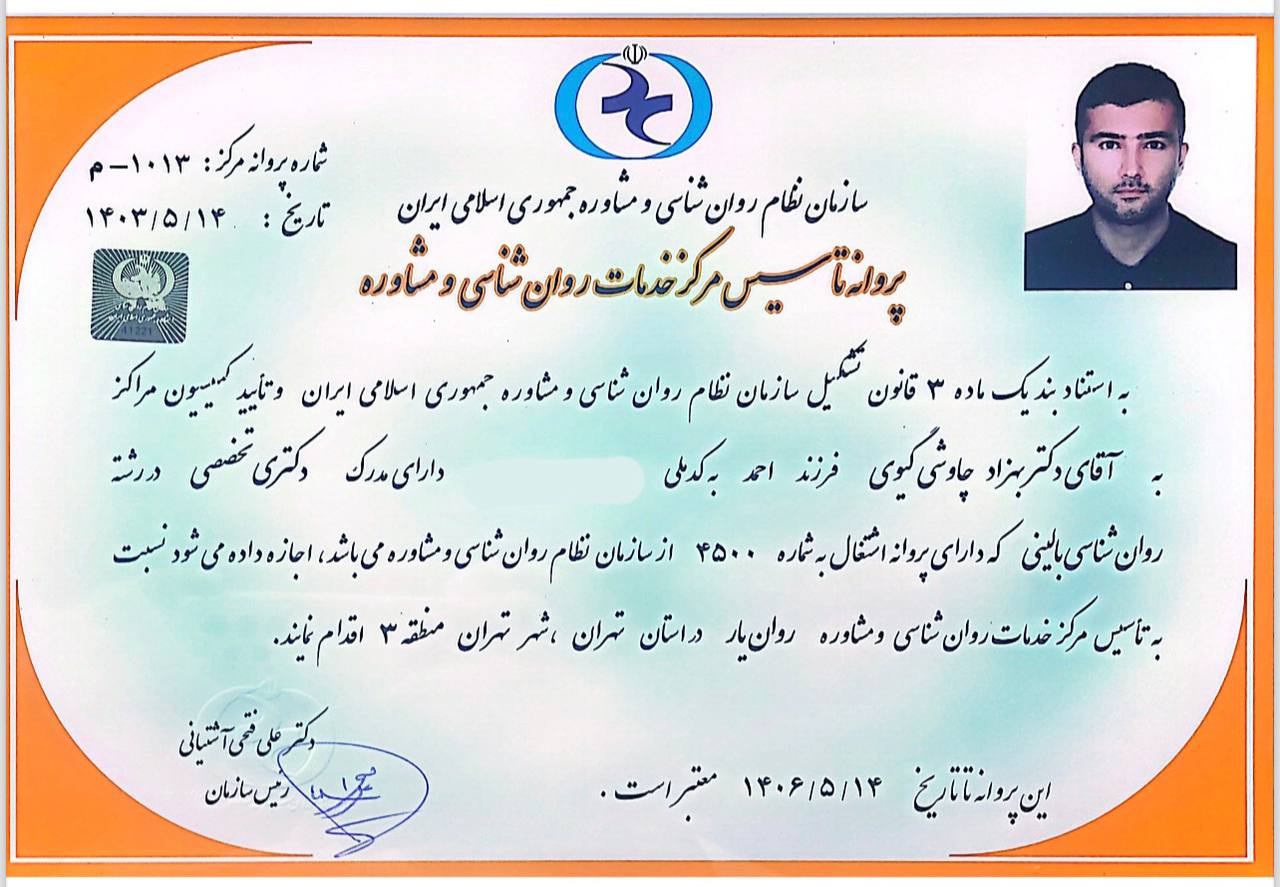 سازمان نظام روان شناسی و مشاوره جمهوری اسلامی ایران
شماره پروانه مرکز: ۱۰۱۳-م
تاریخ: ۱۴۰۳/۵/۱۴
پروانه تأسیس مرکز خدمات روان شناسی و مشاوره
41221
به استناد بند یک ماده ۳ قانون تشکیل سازمان نظام روان شناسی و مشاوره جمهوری اسلامی ایران و تأیید کمیسیون مراکز
به آقای دکتر بهزاد چاوشی گیوی فرزند احمد به کدملی دارای مدرک دکتری تخصصی در رشته
روان شناسی بالینی که دارای پروانه اشتغال به شماره ۴۵۰۰ از سازمان نظام روان شناسی و مشاوره می باشد، اجازه داده می شود نسبت
به تأسیس مرکز خدمات روان شناسی و مشاوره روان یار در استان تهران ،شهر تهران منطقه ۳ اقدام نمایند.
دکتر علی فتحی آشتیانی
رئیس سازمان
این پروانه تا تاریخ ۱۴۰۶/۵/۱۴ معتبر است.